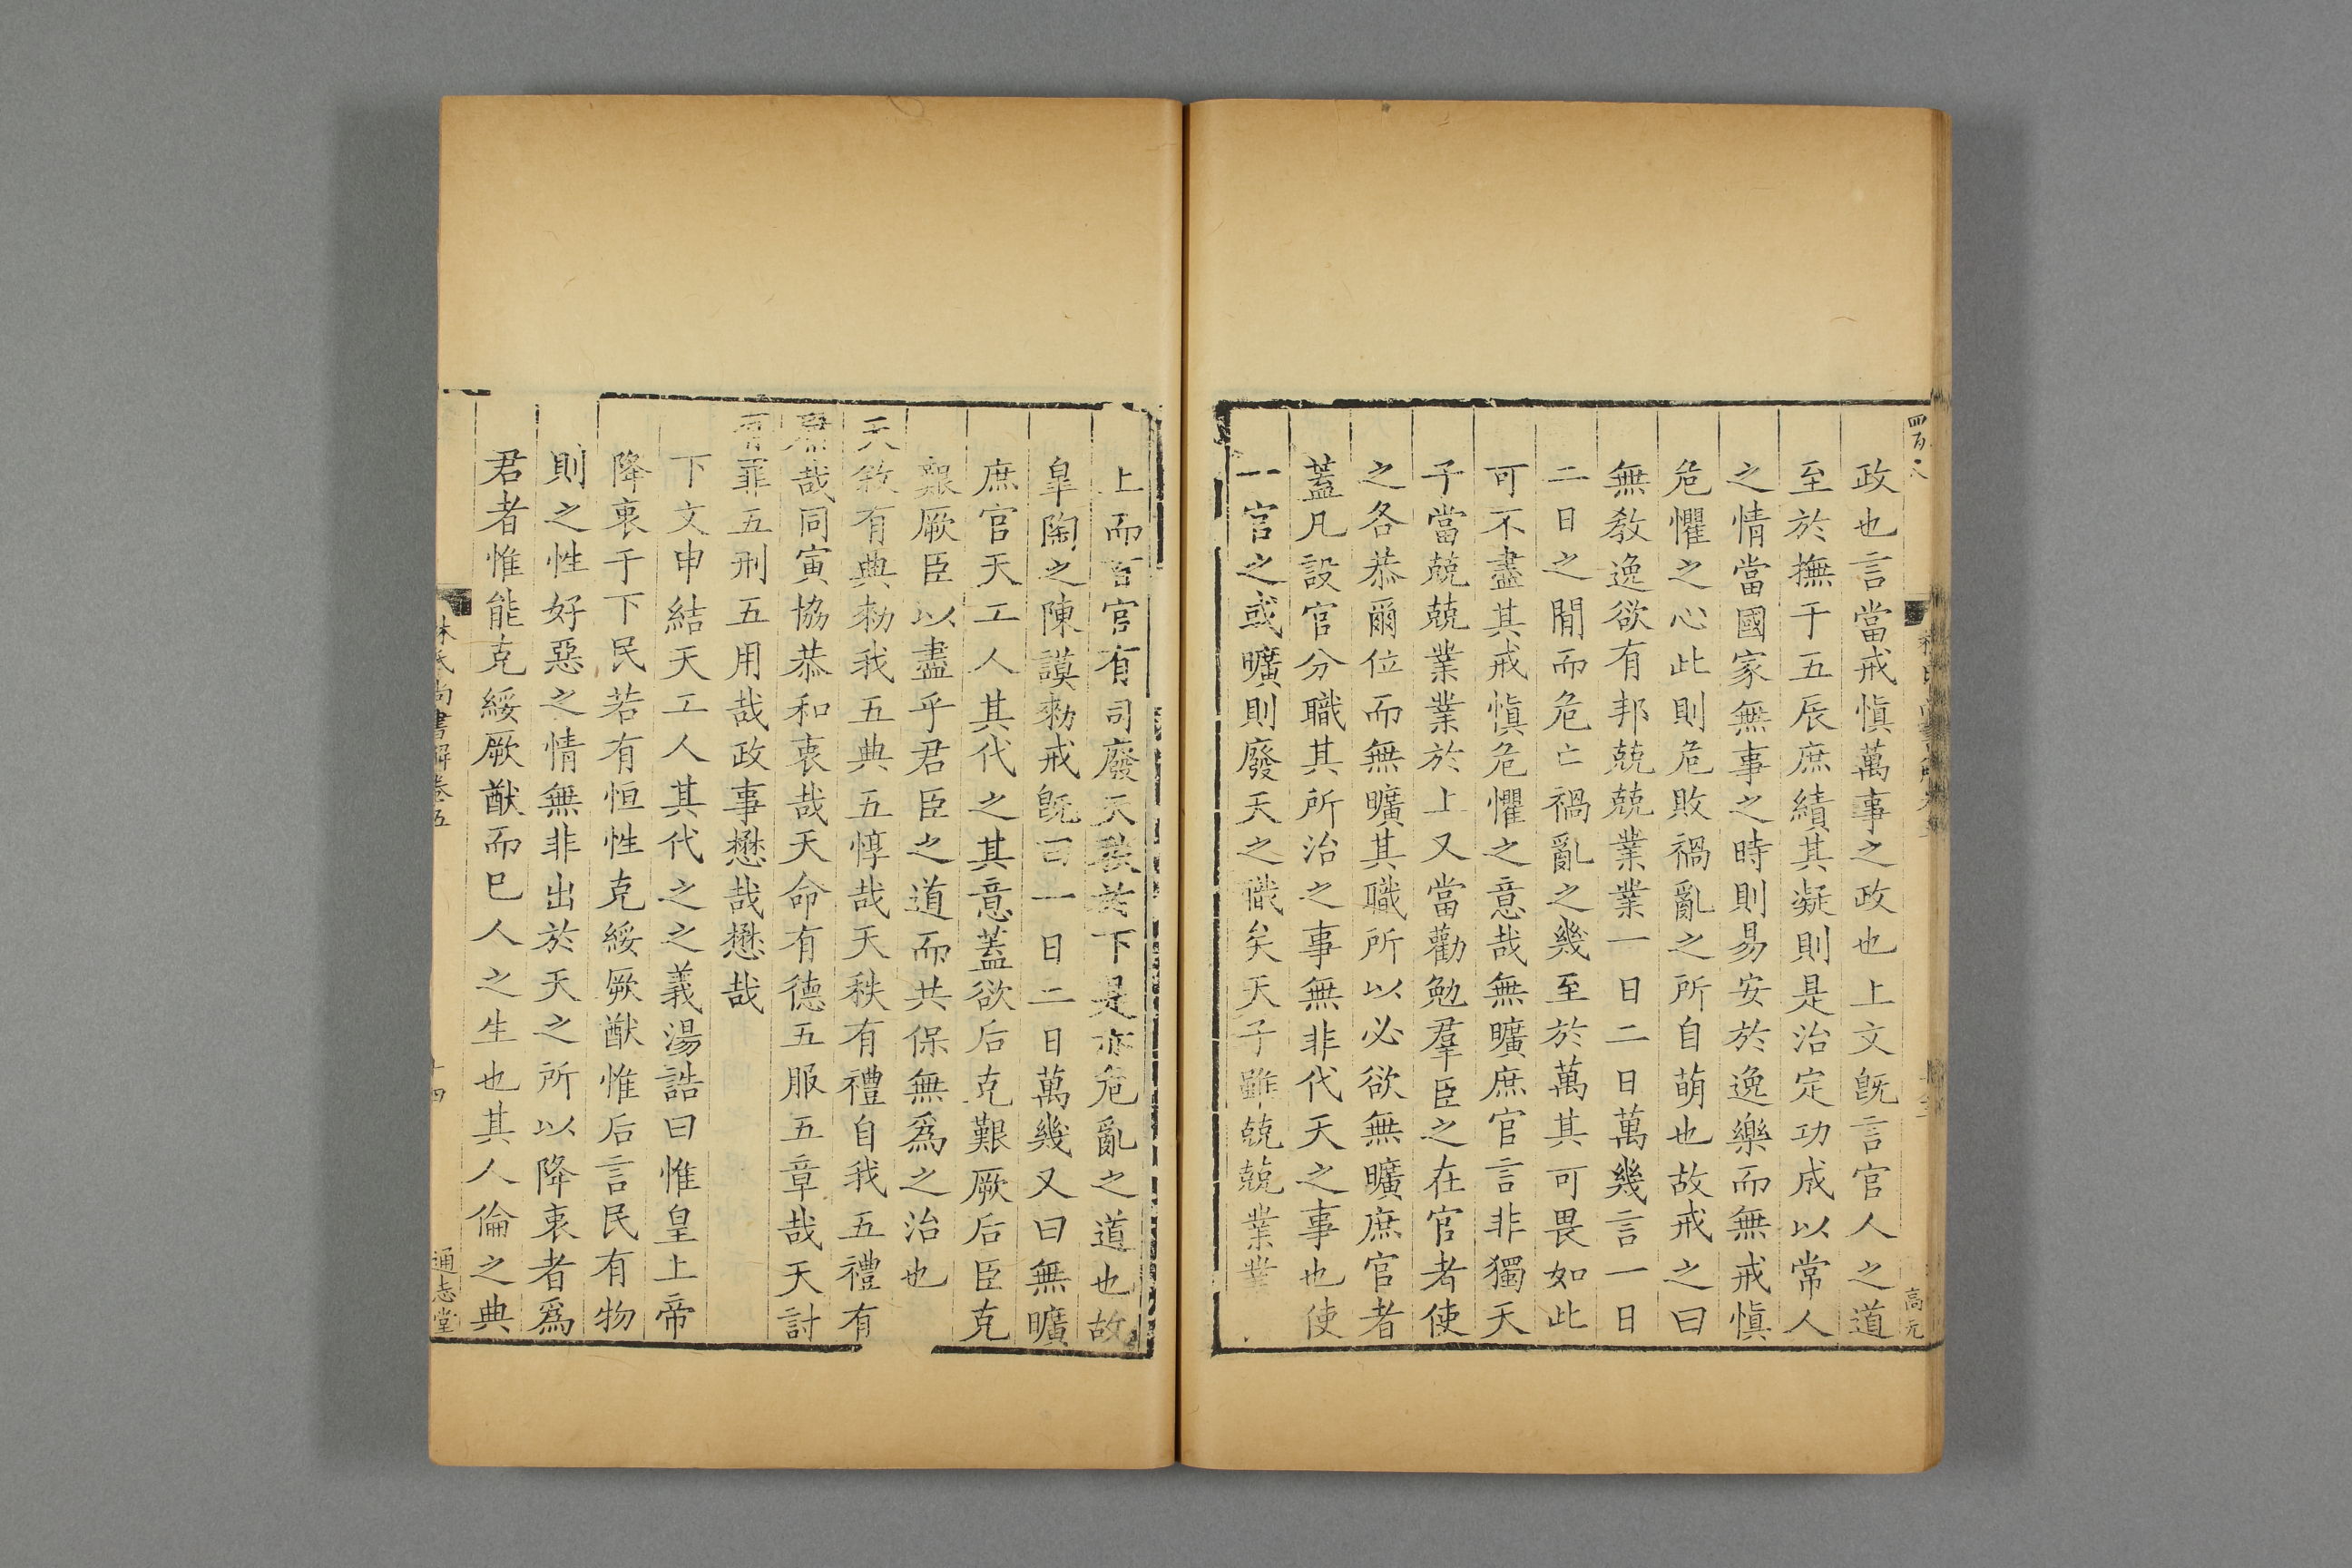 四百
高元
政也言當戒愼萬事之政也上文旣言官人之道
至於撫于五辰庶績其凝則是治定功成以常人
之情當國家無事之時則易安於逸樂而無戒愼
危懼之心此則危敗禍亂之所自萌也故戒之曰
無敎逸欲有邦兢兢業業一日二日萬幾言一日
二日之閒而危亡禍亂之幾至於萬其可畏如此
可不盡其戒愼危懼之意哉無曠庶官言非獨天
子當兢兢業業於上又當勸勉羣臣之在官者使
之各恭爾位而無曠其職所以必欲無曠庶官者
蓋凡設官分職其所治之事無非代天之事也使
一官之或曠則廢天之職矣天子雖兢兢業業
上而百官有司廢天職於下是亦危亂之道也故
皐陶之陳謨勑戒旣曰一日二日萬幾又曰無曠
庶官天工人其代之其意蓋欲后克艱厥后臣克
艱厥臣以盡乎君臣之道而共保無爲之治也
天敘有典勑我五典五惇哉天秩有禮自我五禮有
庸哉同寅協恭和衷哉天命有德五服五章哉天討
有罪五刑五用哉政事懋哉懋哉
下文申結天工人其代之之義湯誥曰惟皇上帝
降衷于下民若有恒性克綏厥猷惟后言民有物
則之性好惡之情無非出於天之所以降衷者爲
君者惟能克綏厥猷而巳人之生也其人倫之典
林氏尚書解卷五
十四
通志堂